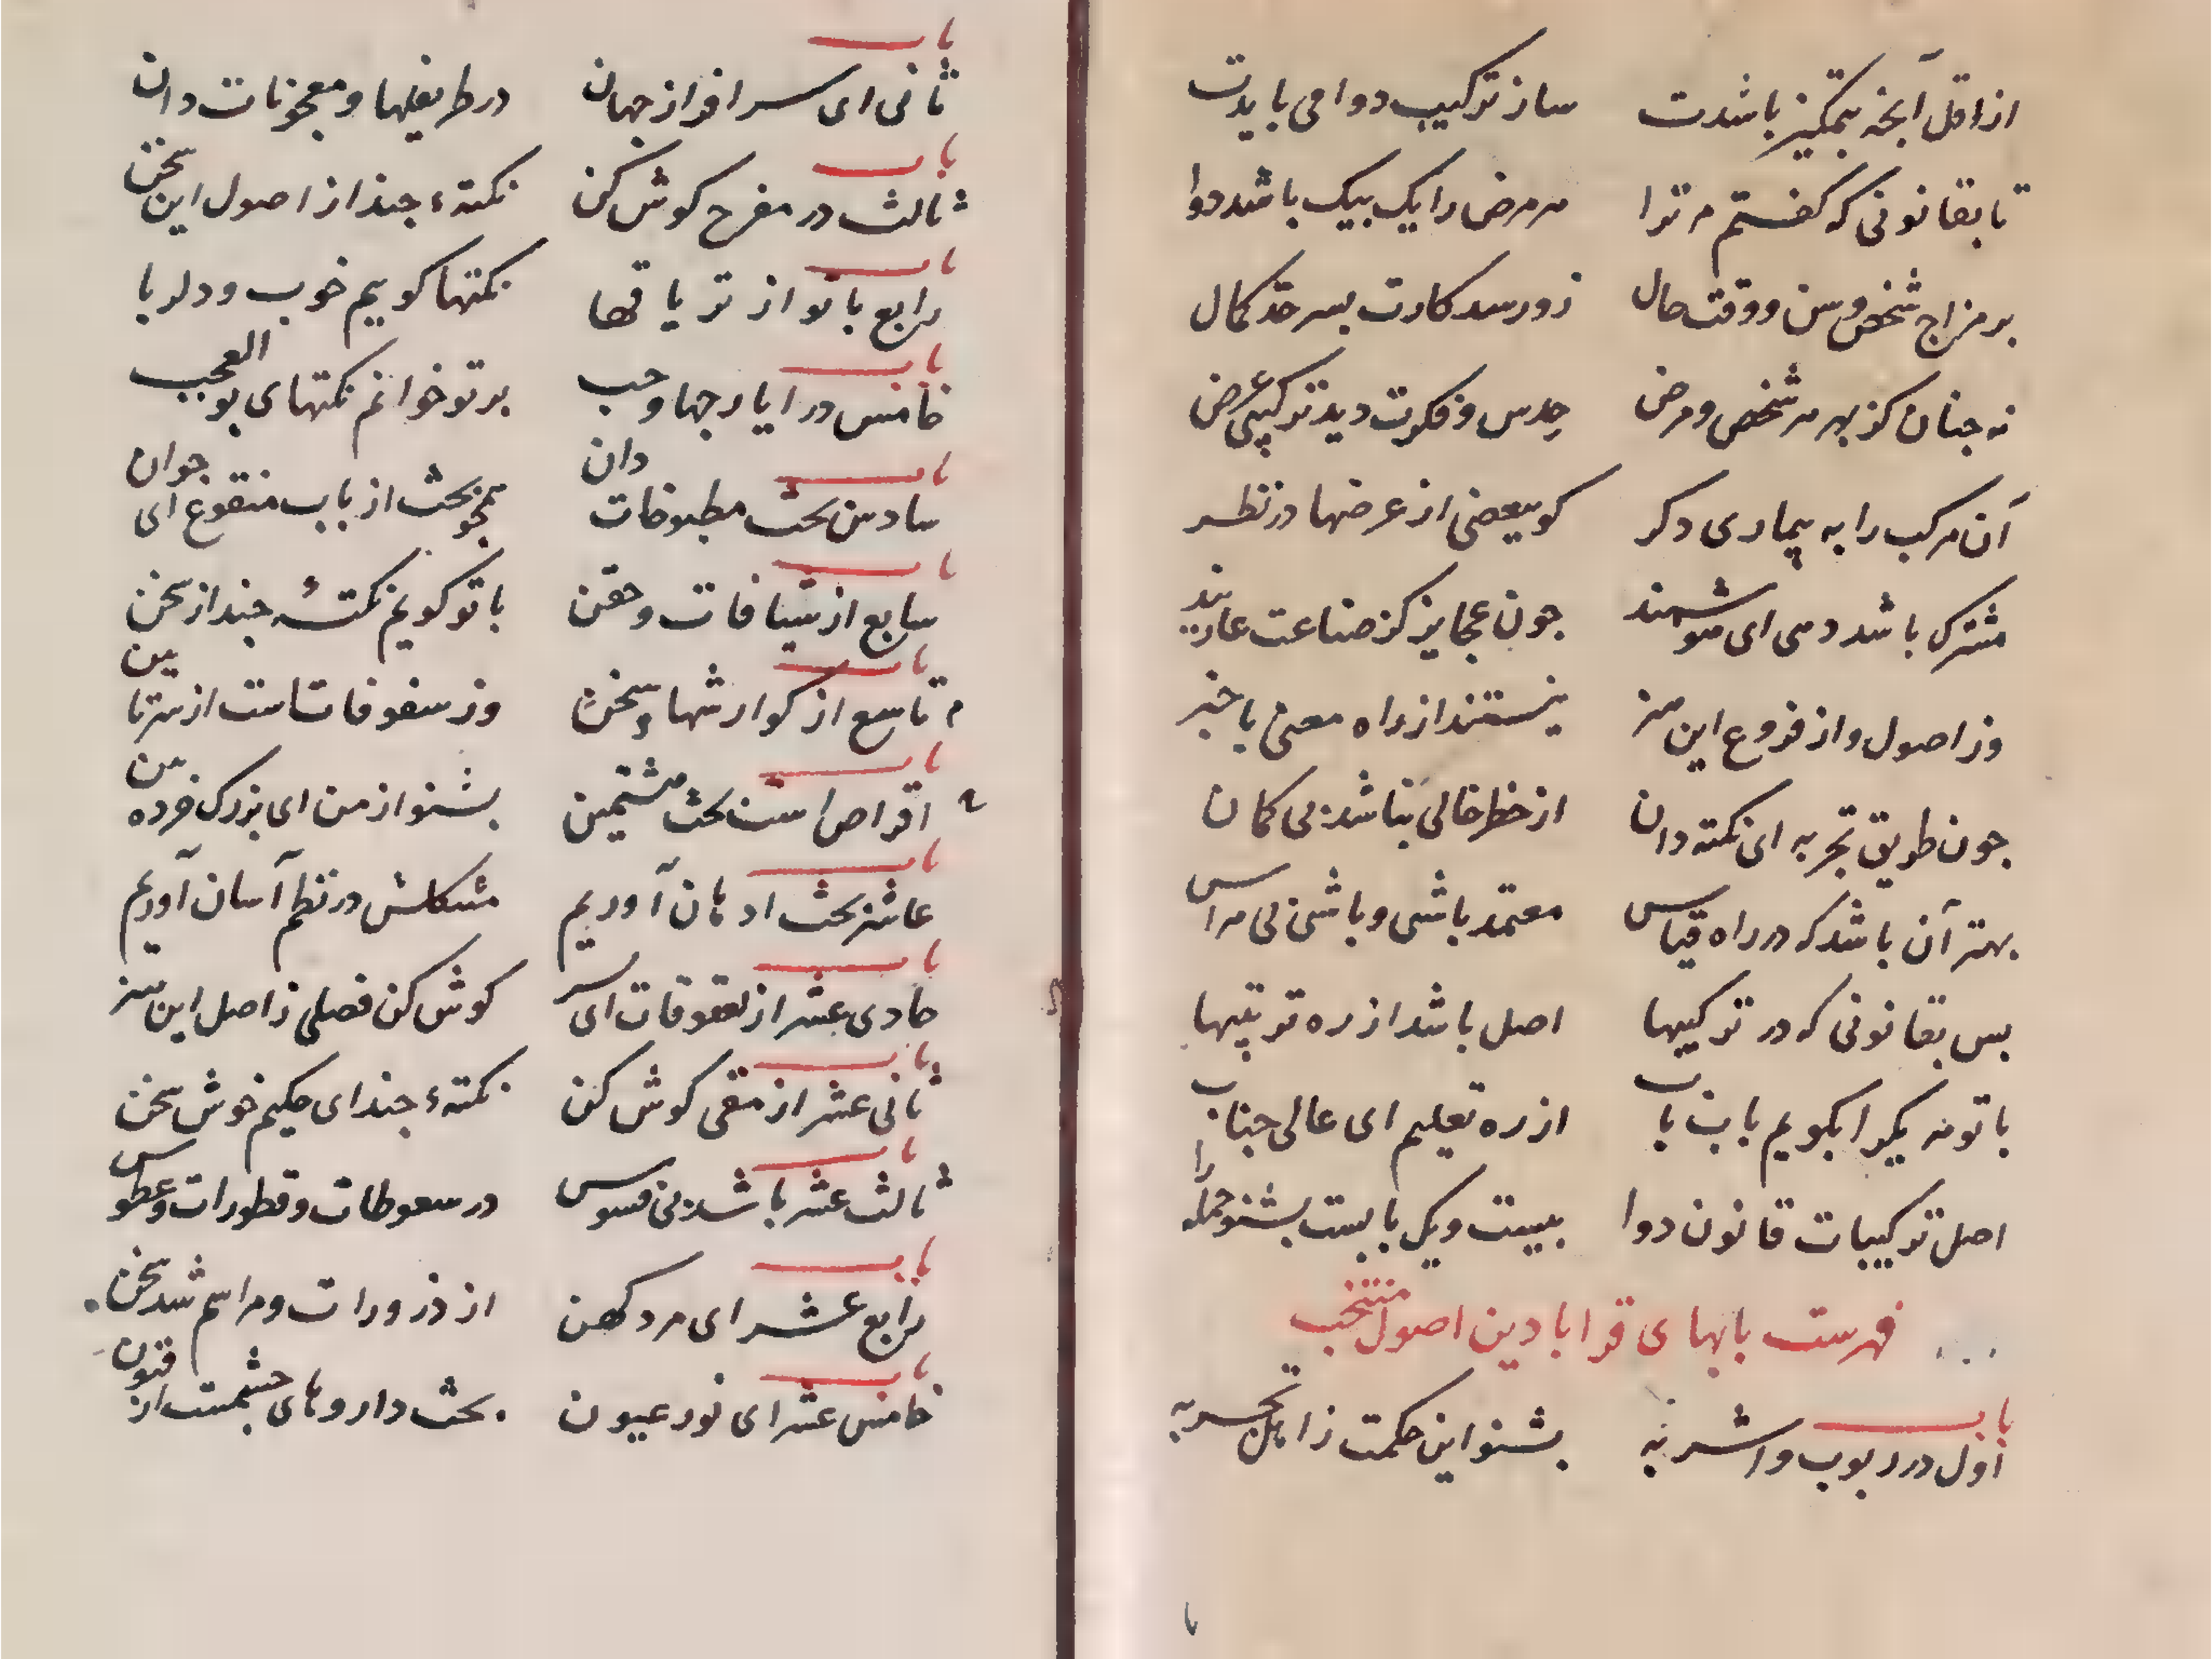 از اقل آنچه بتمکیز باشدت ساز ترکیب دوا می بایدت
تا بقانونی که کفتم مر ترا هر مرض را یک بیک باشد دوا
بر مزاج شخص و سن و وقت حال زور سد کارت بسر حد کمال
نه جنان کز بهر هر شخص و مرض حدس و فکرت دید ترکیبی عرض
آن مرکب را به بیماری دکر کو ببعضی از عرضها در نظر
مشترک باشد دهی ای هوشمند جون عجایز کز صناعت عاریند
وز اصول و از فروع این هنر نیستند از راه معنی با خبر
جون طریق تجربه ای نکته دان از خطر خالی نباشد بی کمان
بهتر آن باشد که در راه قیاس معتمد باشی و باشی بی هراس
بس بقانونی که در ترکیبها اصل باشد از ره ترتیبها
با تو هر یک را بکویم باب باب از ره تعلیم ای عالی جناب
اصل ترکیبات قانون دوا بیست ویک بابست بشنو جمله را
فهرست بابهای قرابادین اصول منتخب
باب
اول در ربوب و اشربه بشنو این حکمت ز اهل تجربه
باب
ثانی ای سرافراز جهان در طریفلها و معجونات دان
باب
ثالث در مفرح کوش کن نکتهٔ جند از اصول این سخن
باب
رابع با تو از تریاقها نکتها کویم خوب و دلربا
باب
خامس در ایارجها و حب بر تو خوانم نکتهای بو العجب
باب
سادس بحث مطبوخات دان همجو بحث از باب منقوع ای جوان
باب
سابع از شیافات و حقن با تو کویم نکتهٔ جند از سخن
باب
تاسع از کوارشها و سخن وز سفوفاتست از سر تا ببن
باب
اقراص است بحث مثمین بشنو از من ای بزرک خرده بین
باب
عاشر بحث ادهان آوریم مشکلش در نظم آسان آوریم
باب
حادی عشر از لعوقات ای بسر کوش کن فصلی ز اصل این هنر
باب
ثانی عشر از مقی کوش کن نکتهٔ جند ای حکیم خوش سخن
باب
ثالث عشر باشد بی فسوس در سعوطات و قطورات و عطوس
باب
رابع عشر ای مرد کهن از ذرورات و مراهم شد سخن
باب
خامس عشر ای نور عیون بحث داروهای چشمست از فنون